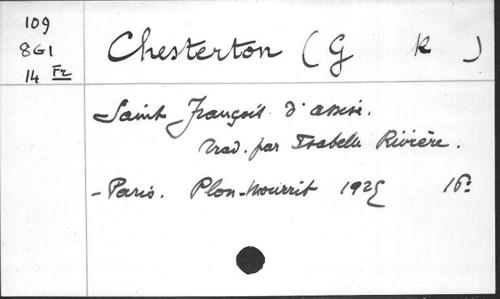 109
8G1
14 Fr
Chesterton (G K)
Saint François d'assise.
trad. par Isabelle Rivière.
- Paris. Plon-Nourrit 1925 16º